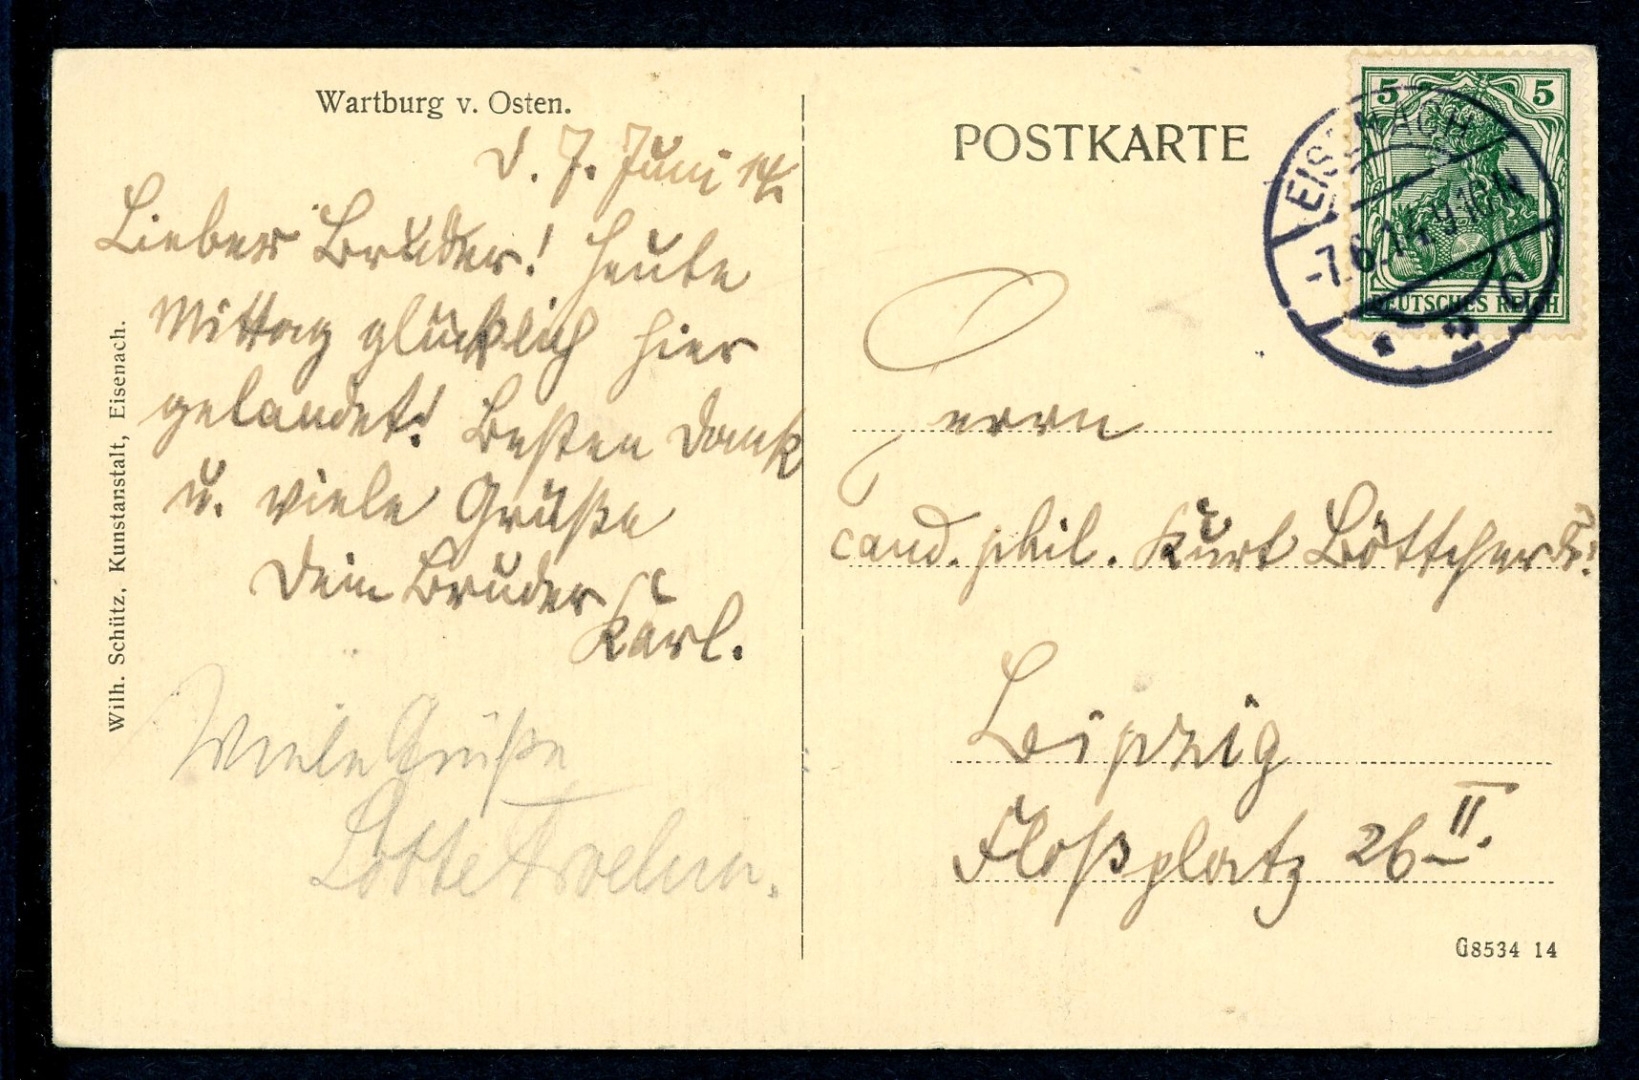 Wartburg v. Osten.
d. 7. Juni 14.
Lieber Bruder! Heute
Mittag glücklich hier
gelandet! Besten Dank
u. viele Grüße
Dein Bruder
Karl.
Viele Grüße
Lotte
Wilh. Schütz, Kunstanstalt, Eisenach.
POSTKARTE
5 5
DEUTSCHES REICH
EISENACH
-7.6.14. 9-10 N
* 2 c
Herrn
cand. phil. Kurt Böttcher
Leipzig
Floßplatz 26 II.
G8534 14